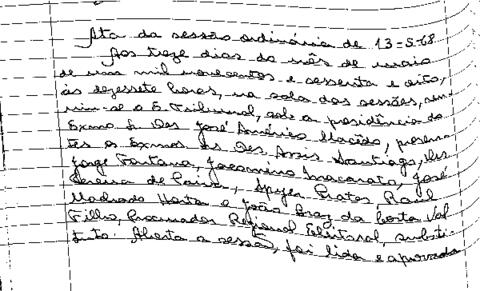 Ata da sessão ordinária de 13-5-68
Aos treze dias do mês de maio
de um mil novecentos e sessenta e oito,
às dezessete horas, na sala das sessões, reu
niu-se o E. Tribunal, sob a presidência do
Exmo Sr. Des José Américo Macêdo, presen
tes os Exmos Srs Des. Assis Santiago, Drs
Jorge Fontana, Jacomino Inacarato, José
Pereira de Paiva, Prates, Raul
Machado Horta e João Braz da Costa Val
Filho, Procurador Regional Eleitoral, substi-
tuto. Aberta a sessão, foi lida e aprovada